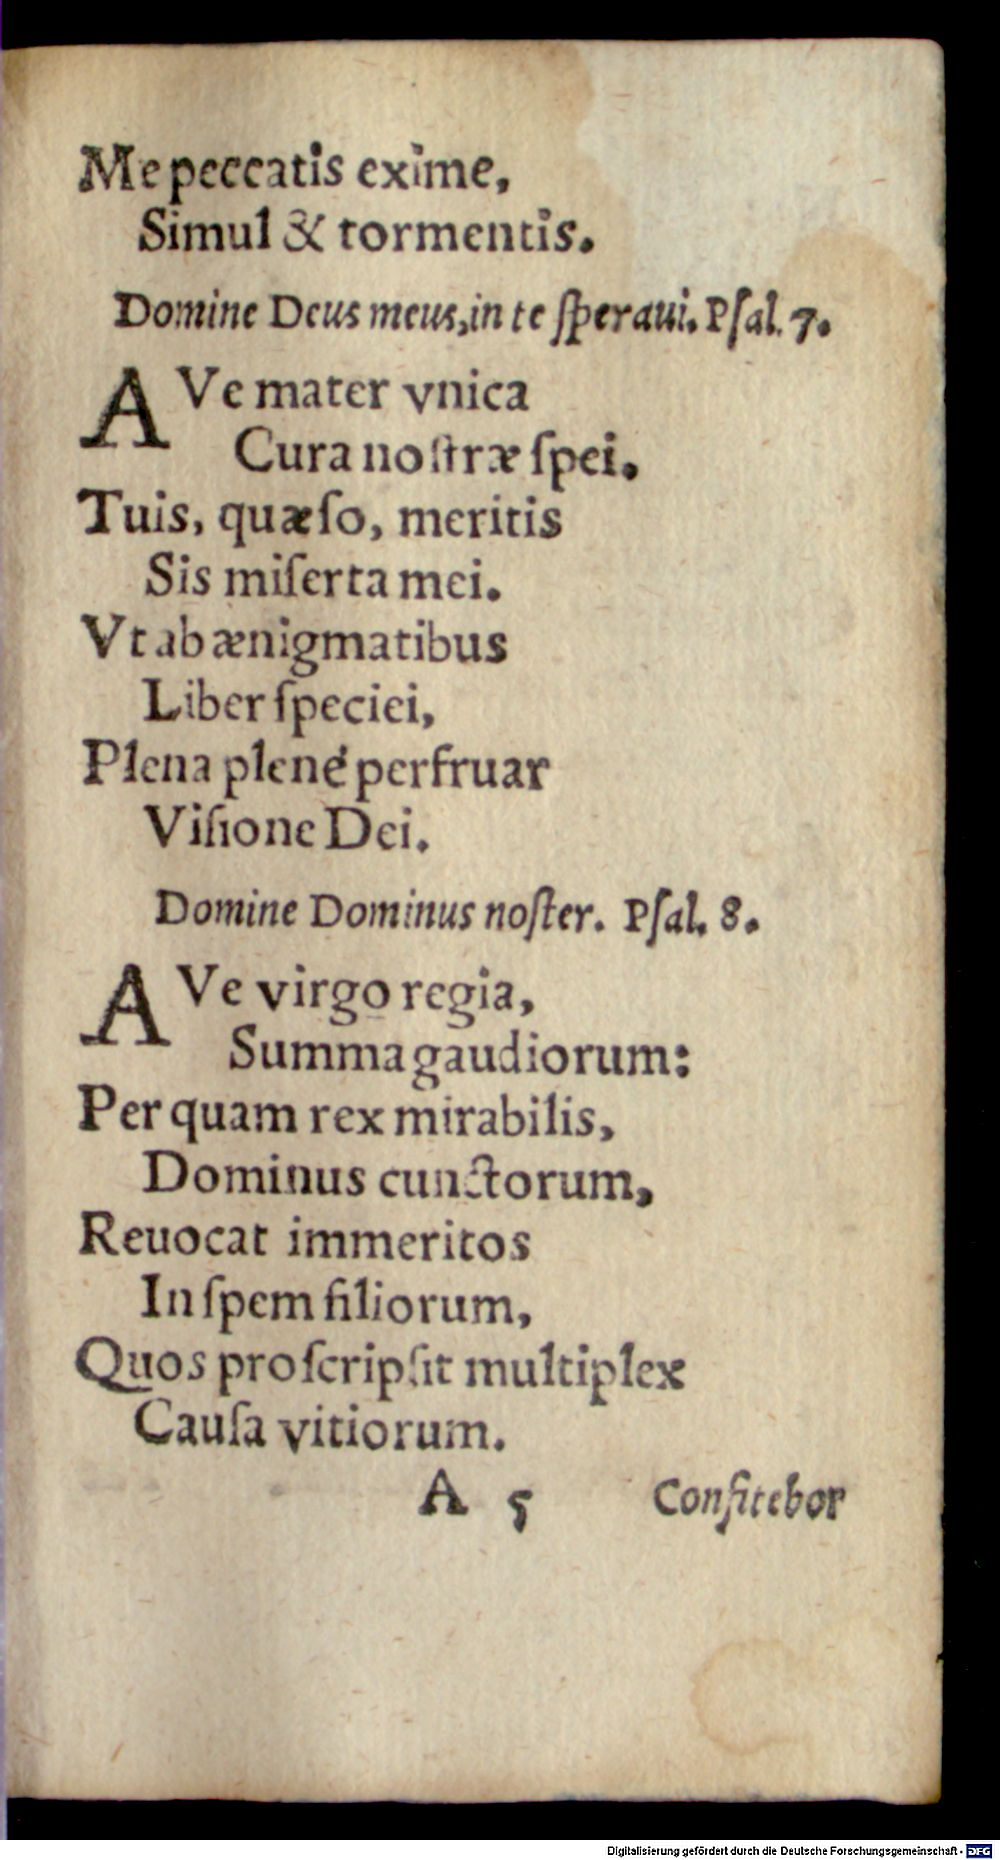 Me peccatis exime,
Simul & tormentis.
Domine Deus meus, in te ſperaui. Pſal. 7.
AVe mater vnica
Cura noſtræ ſpei.
Tuis, quæſo, meritis
Sis miſerta mei.
Vt ab ænigmatibus
Liber ſpeciei,
Plena plenè perfruar
Viſione Dei.
Domine Dominus noſter. Pſal. 8.
AVe virgo regia,
Summa gaudiorum:
Per quam rex mirabilis,
Dominus cunctorum,
Reuocat immeritos
In ſpem filiorum,
Quos proſcripſit multiplex
Cauſa vitiorum.
A 5 Confitebor
Digitalisierung gefördert durch die Deutsche Forschungsgemeinschaft - DFG